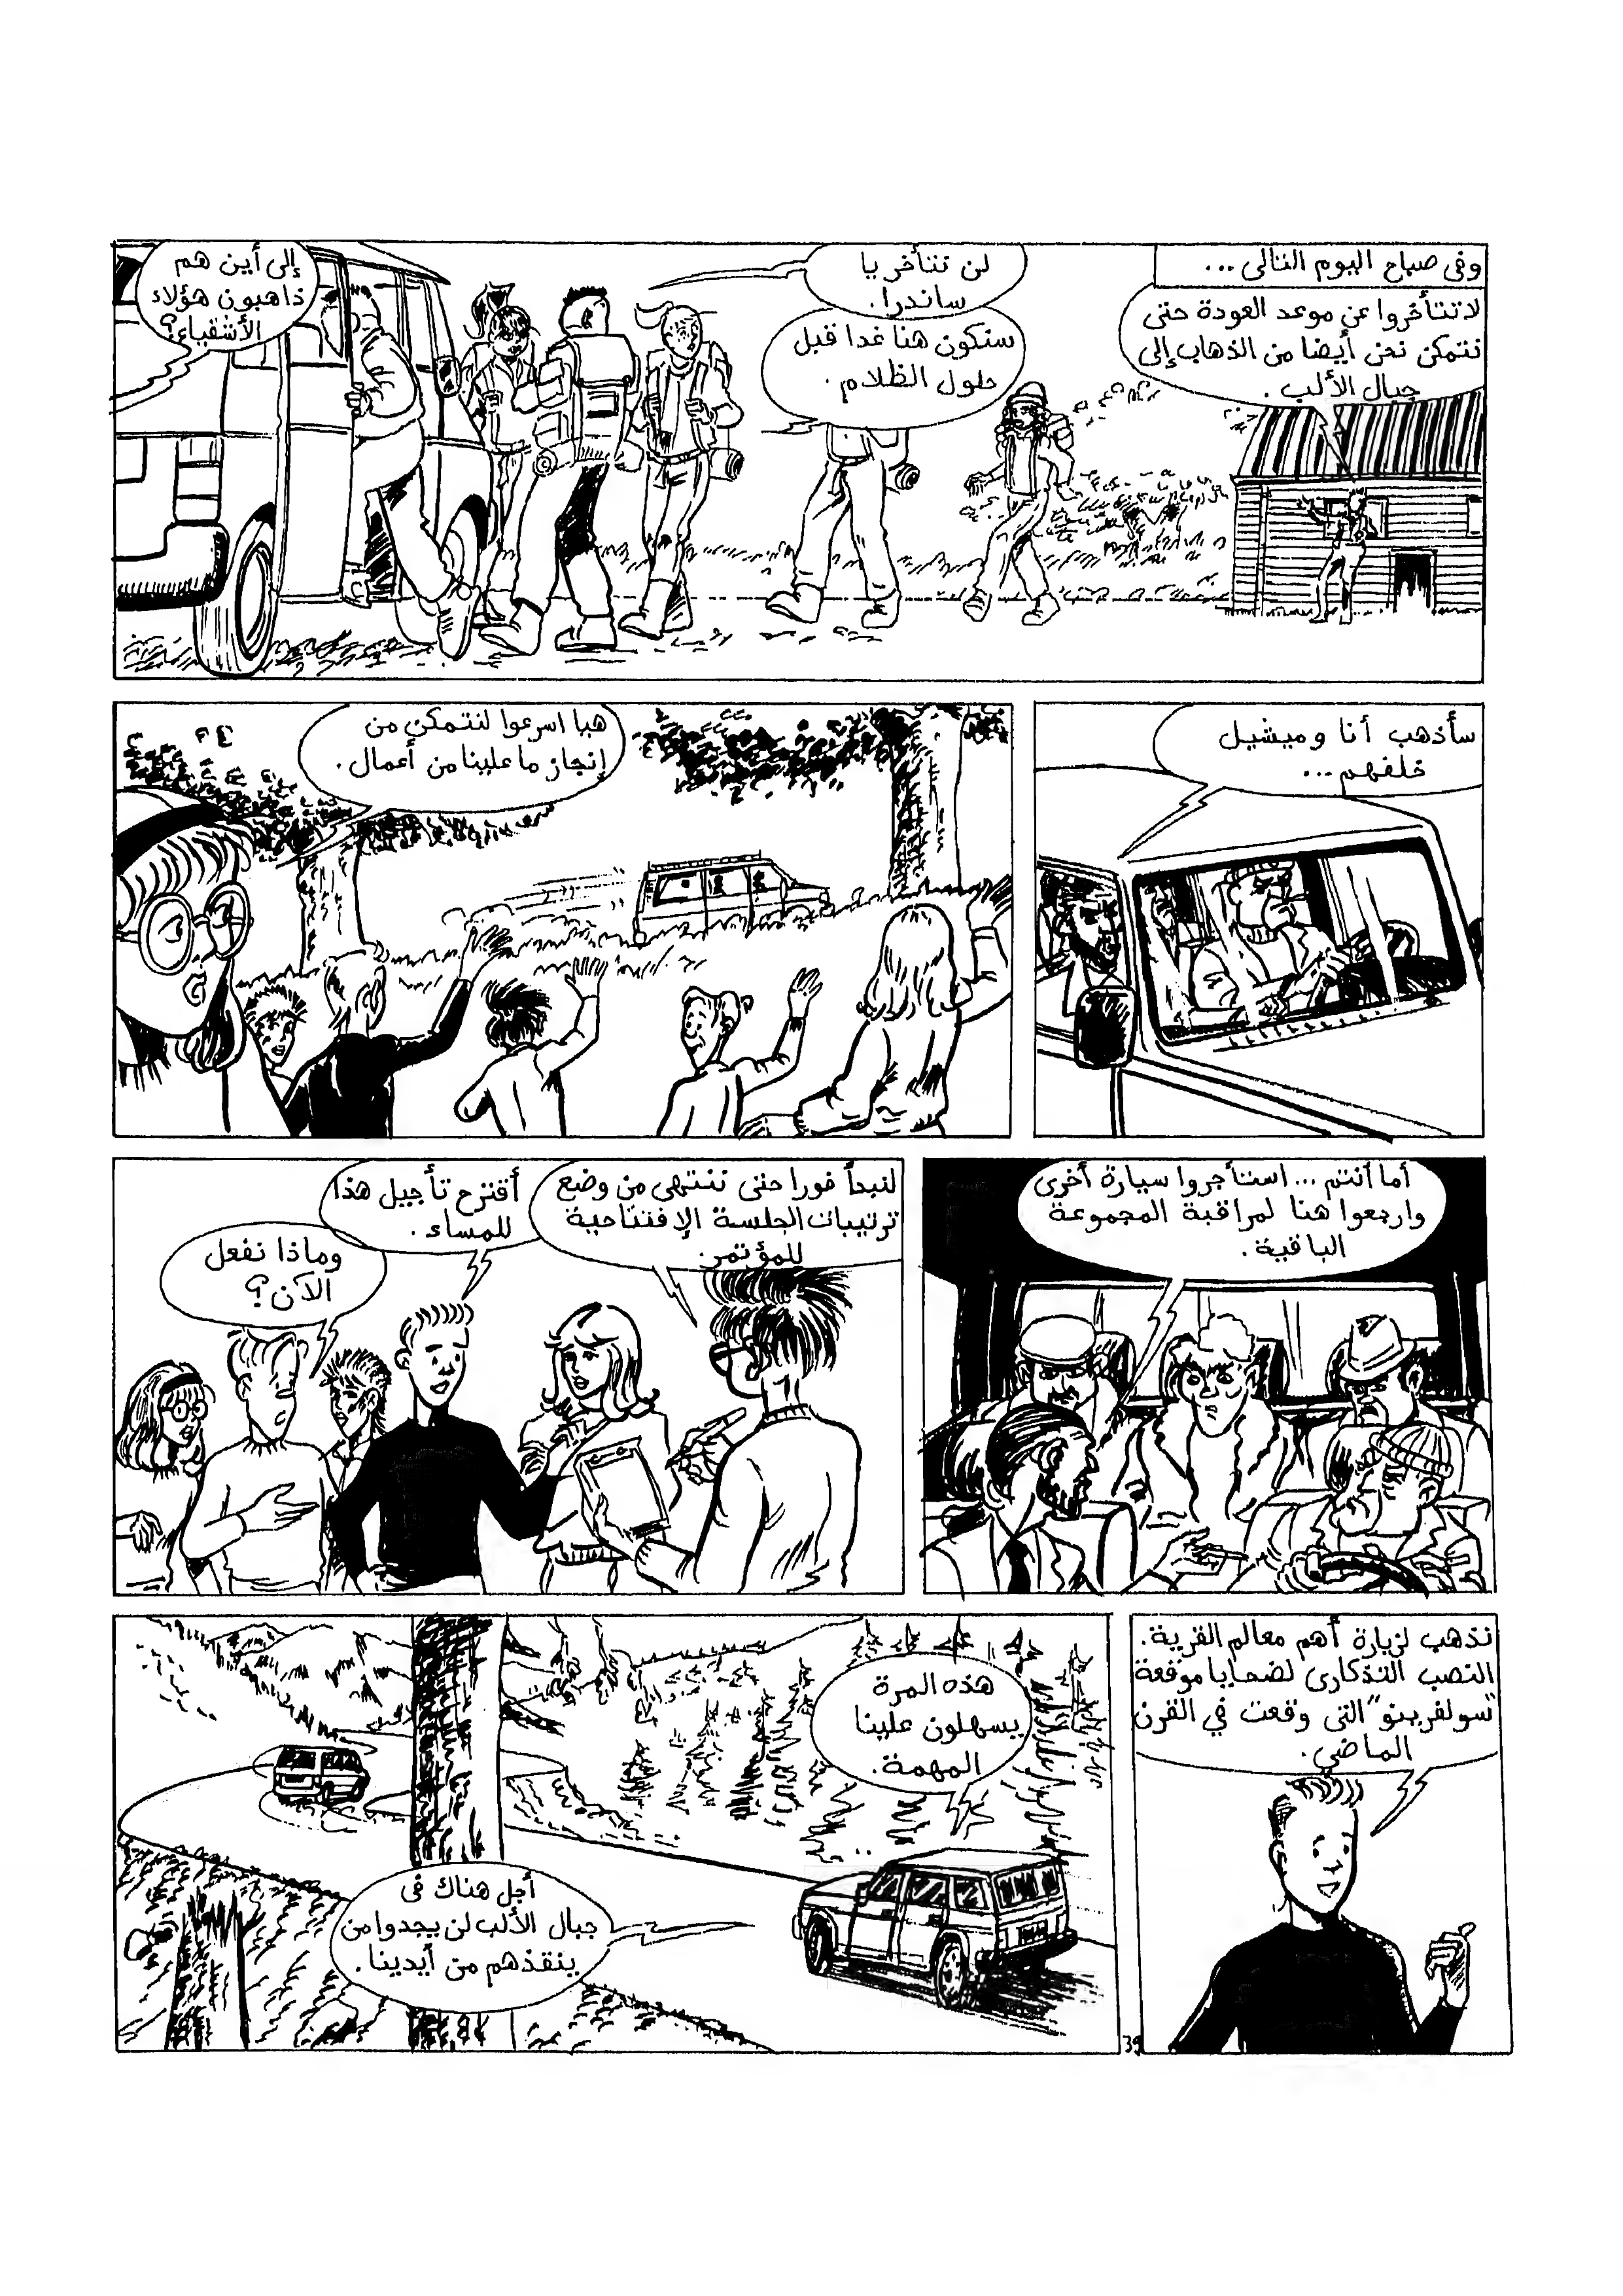 وفى صباح اليوم التالى ...
لا تتأخروا عن موعد العودة حتى
نتمكن نحن أيضا من الذهاب إلى
جبال الألب .
لن نتأخر يا
ساندرا.
سنكون هنا غدا قبل
حلول الظلام .
إلى أين هم
ذاهبون هؤلاء
الأشقياء؟
سأذهب أنا وميشيل
خلفهم ...
هيا اسرعوا لنتمكن من
إنجاز ما علينا من أعمال .
أما أنتم ... استأجروا سيارة أخرى
وارجعوا هنا لمراقبة المجموعة
الباقية .
لنبدأ فورا حتى ننتهى من وضع
ترتيبات الجلسة الإفتتاحية
للمؤتمر.
أقترح تأجيل هذا
للمساء .
وماذا نفعل
الآن؟
نذهب لزيارة أهم معالم القرية.
النصب التذكارى لضحايا موقعة
"سولفرينو" التى وقعت في القرن
الماضي.
هذه المرة
يسهلون علينا
المهمة.
أجل هناك فى
جبال الألب لن يجدوا من
ينقذهم من أيدينا.
39